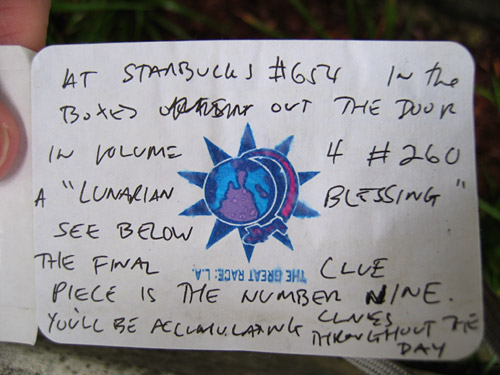 AT STARBUCKS #654 IN the
BOXED OUT THE DOOR
IN VOLUME 4 #260
A "LUNARIAN BLESSING"
SEE BELOW
THE FINAL CLUE
PIECE IS THE NUMBER NINE.
YOU'LL BE ACCUMULATING CLUES THROUGHOUT THE
DAY
THE GREAT RACE: L.A.